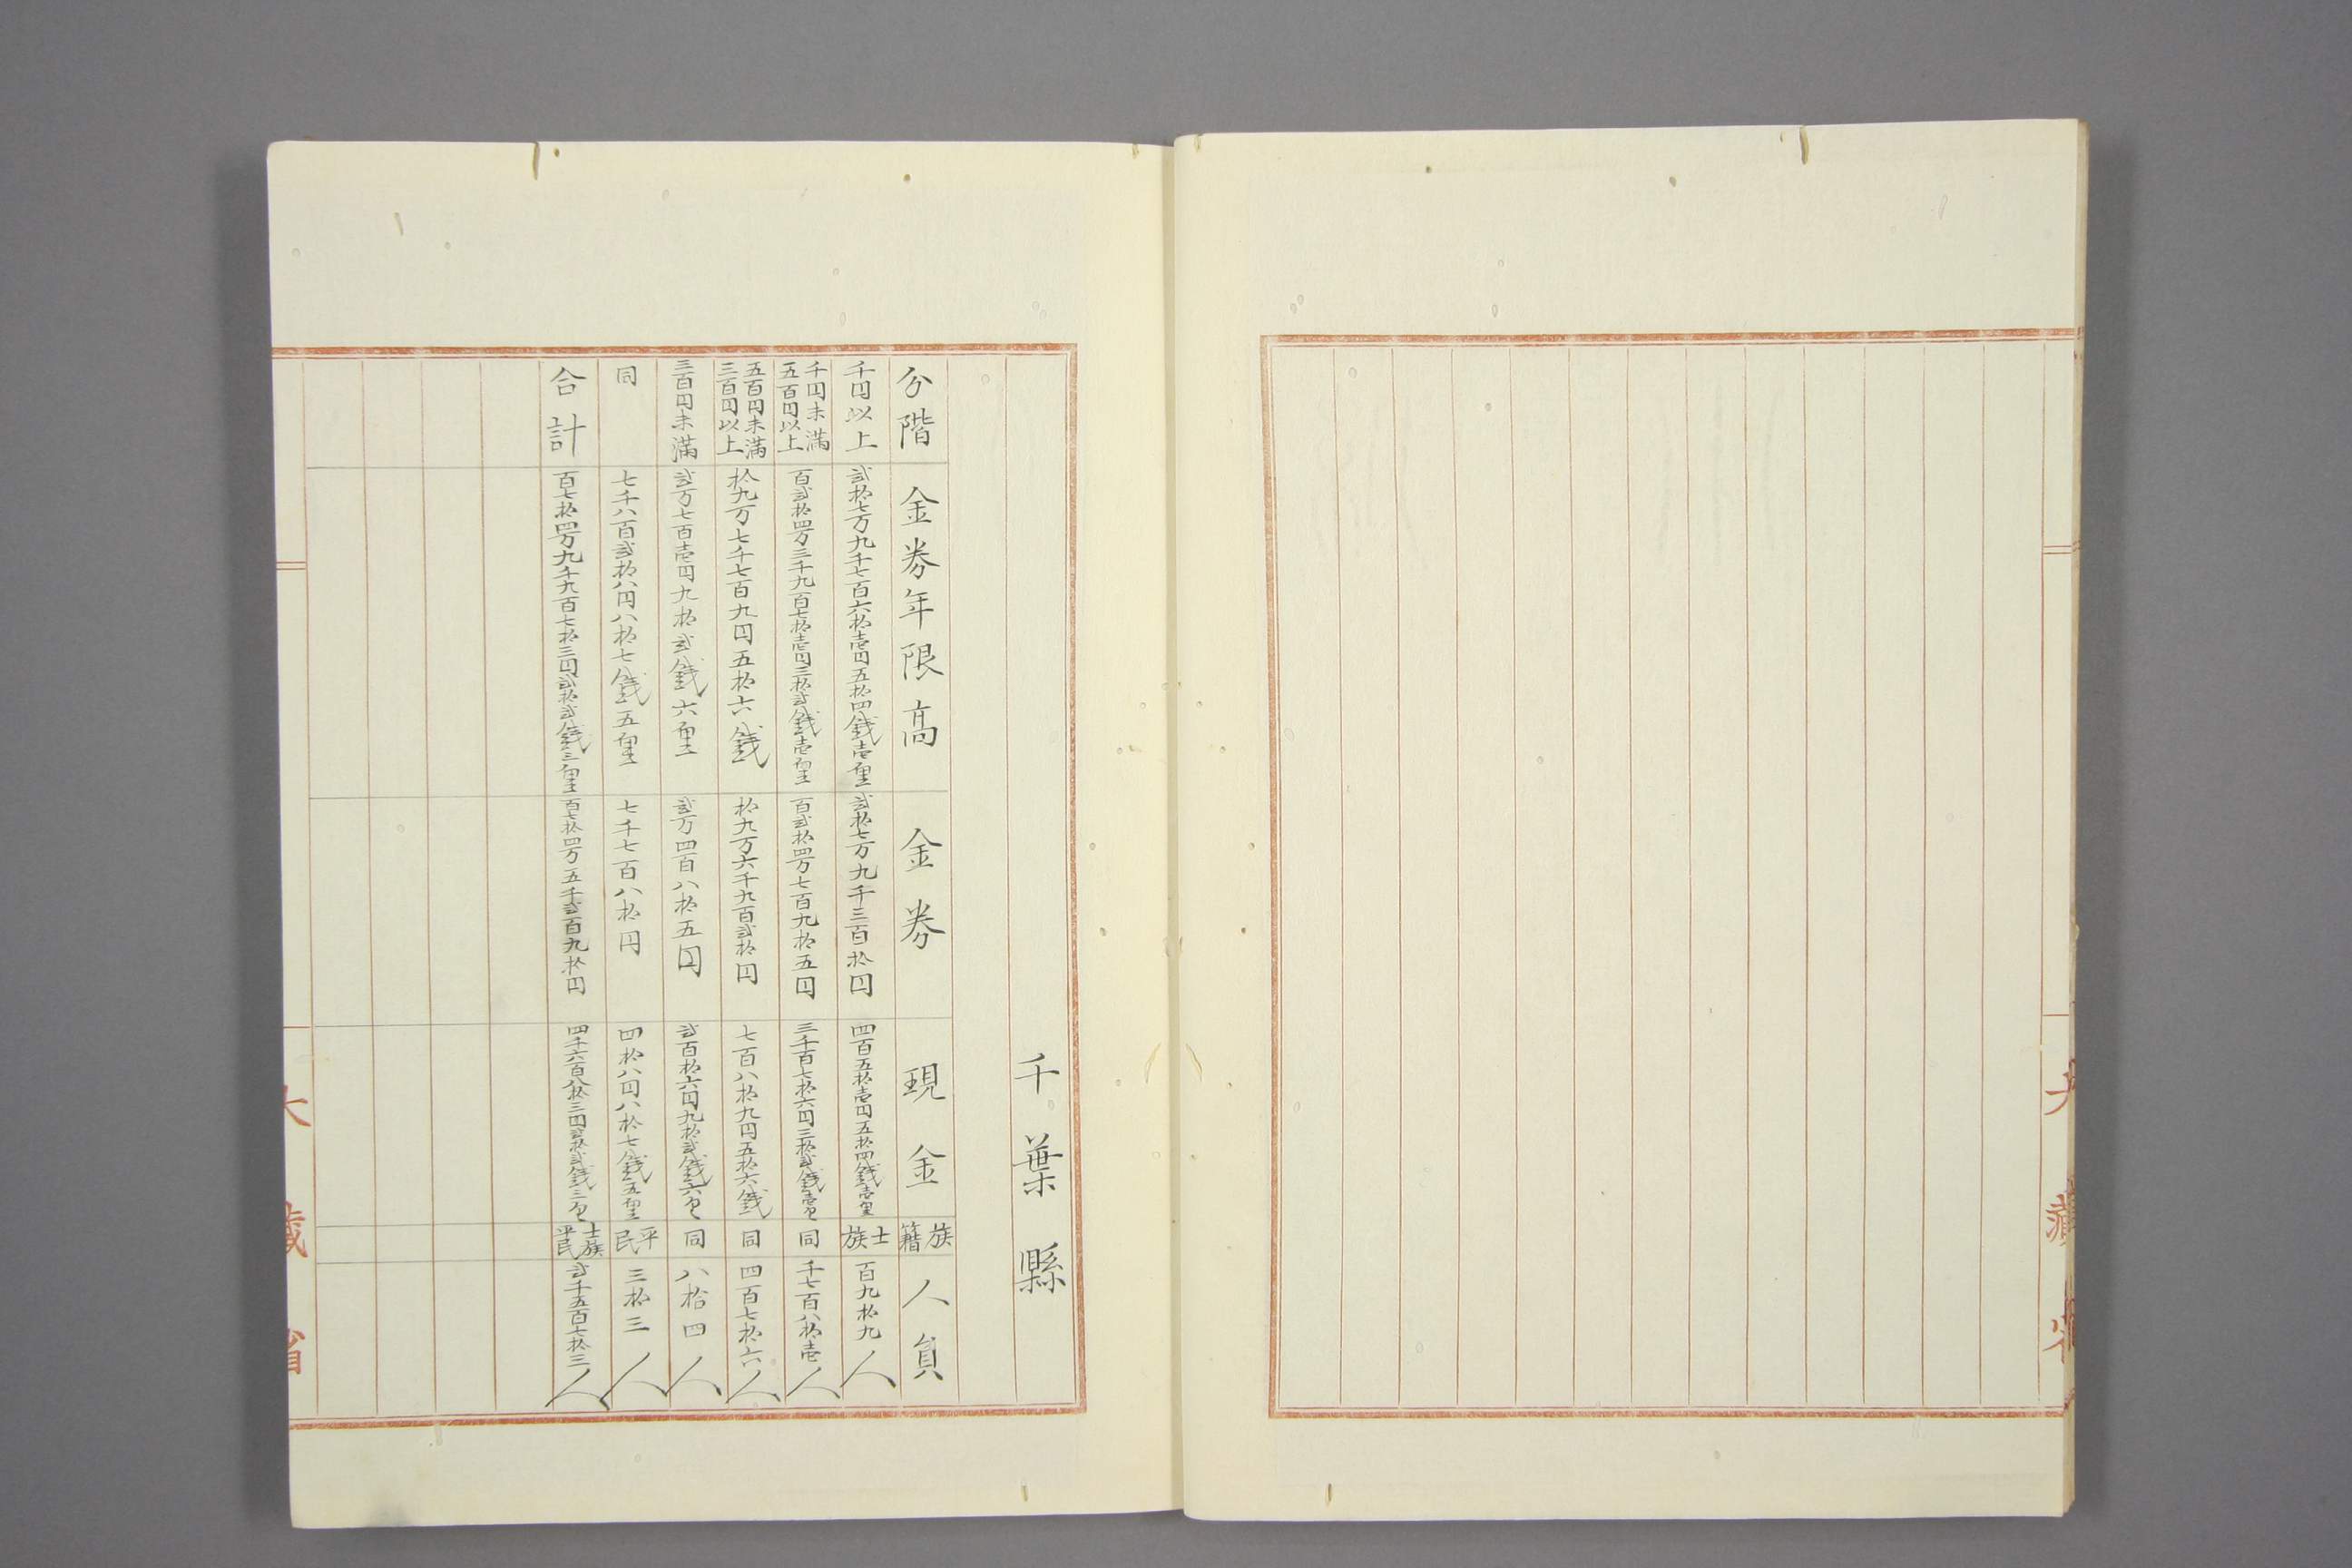 千葉縣
分階 金券年限高 金券 現金 族籍 人員
千円以上 貳拾七万九千七百六拾壱円五拾四銭壱厘 貳拾七万九千三百拾円 四百五拾壱円五拾四銭壱厘 士族 百九拾九人
千円未満五百円以上 百貳拾四万三千九百七拾壱円三拾貳銭壱厘 百貳拾四万七百九拾五円 三千百七拾六円三拾貳銭壱厘 同 千七百八拾壱人
五百円未満三百円以上 拾九万七千七百九円五拾六銭 拾九万六千九百貳拾円 七百八拾九円五拾六銭 同 四百七拾六人
三百円未満 貳万七百壱円九拾貳銭六厘 貳万四百八拾五円 貳百拾六円九拾貳銭六厘 同 八拾四人
同 七千八百貳拾八円八拾七銭五厘 七千七百八拾円 四拾八円八拾七銭五厘 平民 三拾三人
合計 百七拾四万九千九百七拾三円貳拾貳銭三厘 百七拾四万五千貳百九拾円 四千六百八拾三円貳拾貳銭三厘 士族平民 貳千五百七拾三人
大藏省